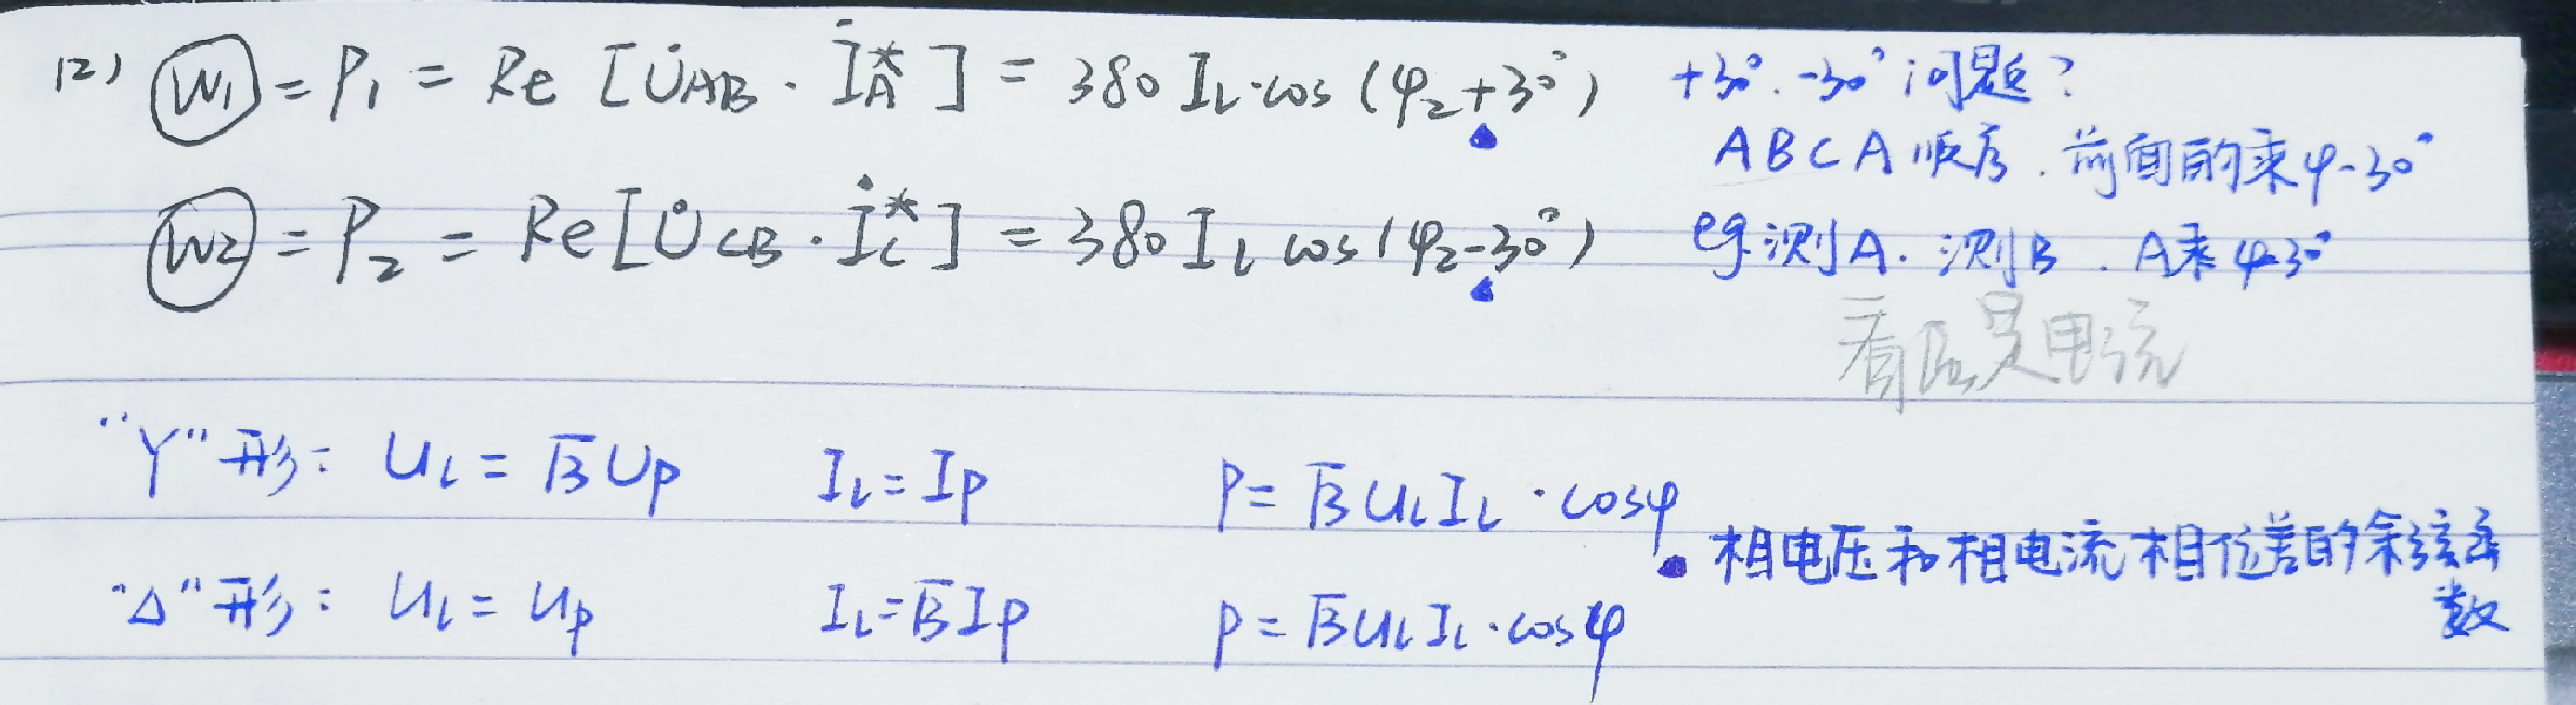 (2) W₁ = P₁ = Re [U̇AB · İA*] = 380 IL·cos (φ₂+30°) +30°. -30° 问题?
ABCA 顺序. 前面的乘φ-30°
W2 = P₂ = Re[U̇CB · İC*] = 380 IL cos(φ₂-30°) eg. 测A. 测B. A乘φ-30°
"Y"形: UL = √3 UP IL = IP P = √3 ULIL · cosφ
相电压和相电流相位差的余弦函数
"Δ"形: UL = UP IL = √3 IP P = √3 ULIL · cosφ